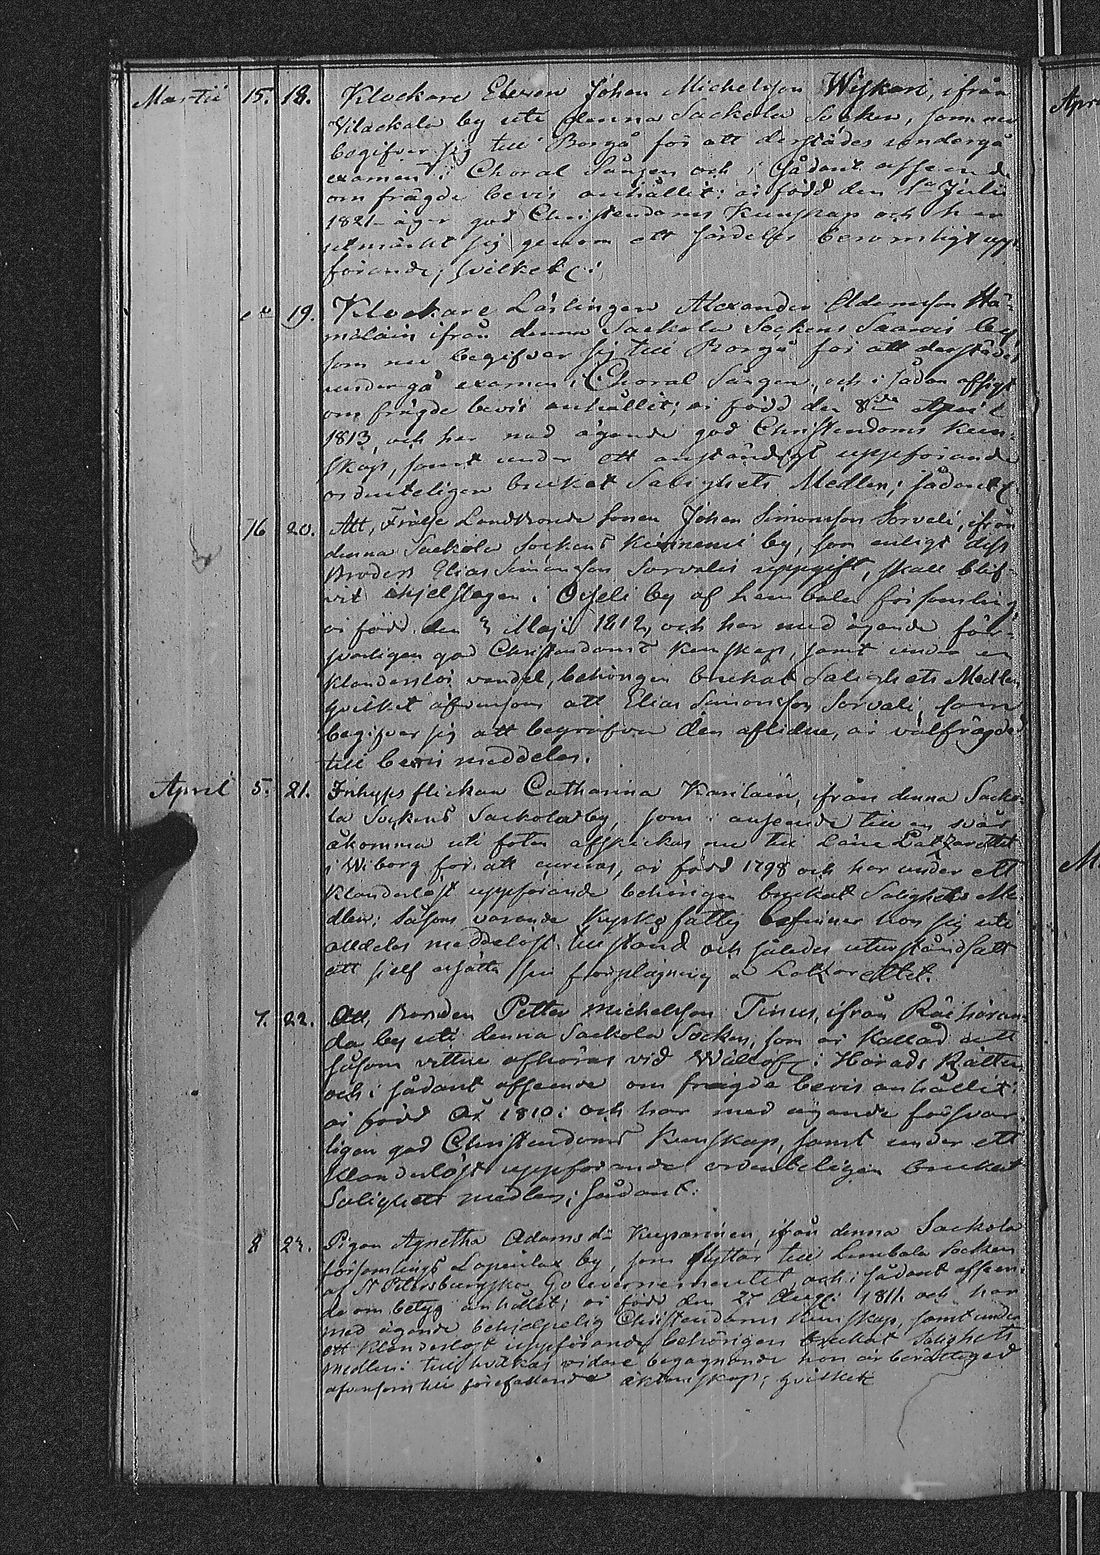 Martii 15. 18. Klockare Eleven Johan Michelsson Wiskari, ifrån
Wilackala by uti denna Sackola Socken, som nu
begifver sig till Borgå för att derstädes undergå
examen i Choral Sången och i sådant afseende
om frägde bevis anhållit; är född den Julii
1821 äger god Christendoms Kunskap och har
utmärkt sig genom ett särdeles berömligt upp-
förande; hvilket
19. Klockare Lärlingen Alexander Adamsson Hä-
mäläin ifrån denna Sackola Sockens Saarois by
som nu begifver sig till Borgå för att derstädes
undergå examen i Choral Sången, och i sådan afsigt
om frägde bevis anhållit; är född den 8de April
1813 och har med ägande god Christendoms Kun-
skap, samt under ett anständigt uppförande
ordenteligen brukat Salighets Medlen; sådant
16 20. Att, Frälse Landbonde sonen Johan Simonsson Sorvali, ifrån
denna Sackola Sockens by, som enligt dess
Broders Elias Simonsson Sorvalis uppgift, skall blif-
vit ihjelslagen i by af församling
är född den 3 Maji 1812, och har med ägande för-
svarligen god Christendoms Kunskap, samt under en
klanderslös vandel, behörigen brukat Salighets Medlen
hvilket äfvensom att Elias Simonsson Sorvali, som
begifver sig att begrafva den aflidne, är välfrägdad
till bevis meddelas.
April 5. 21. Inhyses flickan Catharina Karilain, ifrån denna Sacko-
la Sockens Sackola by, som i anseende till en svår
åkomma uti foten afskickas nu till Läne Latzarettet
i Wiborg för att cureras, är född 1798 och har under ett
klanderlöst uppförande behörigen brukat Salighets Me-
dlen; såsom varande Kyrko fattig befinner hon sig uti
alldeles medellöst tillstånd och således utur ståndsatt
att sjelf ersätta sin förplägning a Latzarettet.
7. 22. Att, Bonden Petter Michelsson Tinus, ifrån Räihäran-
da by uti denna Sackola Socken, som är kallad att
såsom vittne afhöras vid Walkj: Härads Rätten
och i sådant afseende om frägde bevis anhållit:
är född År 1810: och har med ägande försvar-
ligen god Christendoms Kunskap, samt under ett
klanderlöst uppförande ordenteligen brukat
Salighets medlen; sådant:
8 23. Pigan Agnetha Adamsdr Kuparinen, ifrån denna Sackola
församlings Lapinlax by, som flyttar till Lembala Socken
af St Petersburgska Gouvernementet, och i sådant afseen-
de om betyg anhållit; är född den 27 Augti 1811. och har
med ägande behjelpelig Christendoms kunskap, samt under
ett klanderlöst uppförande behörigen brukat Salighets
medlen: till hvilkas vidare begagnande hon är berättigad
äfvensom till förefallande äktenskap; hvilket